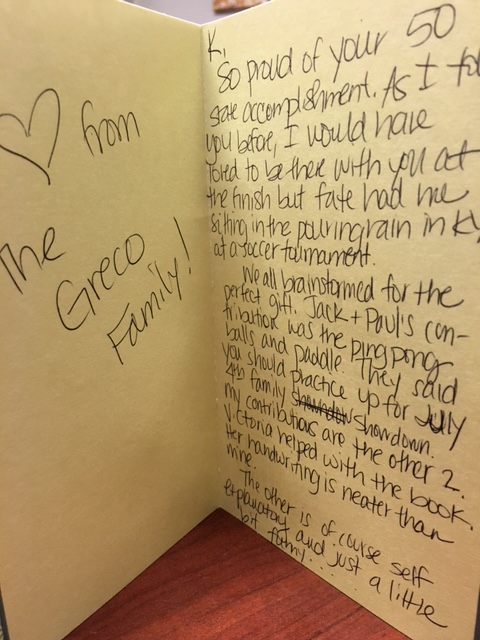 from
The
Greco
Family!
K,
So proud of your 50
state accomplishment. As I
you before, I would have
loved to be there with you at
the finish but fate had me
sitting in the pouring rain in KY
at a soccer tournament.
We all brainstormed for the
perfect gift. Jack + Paul's con-
tribution was the ping pong
balls and paddle. They said
you should practice up for July
4th family showdown.
my contributions are the other 2.
Victoria helped with the book.
Her handwriting is neater than
mine.
The other is of course self
explanatory and just a little
bit funny....